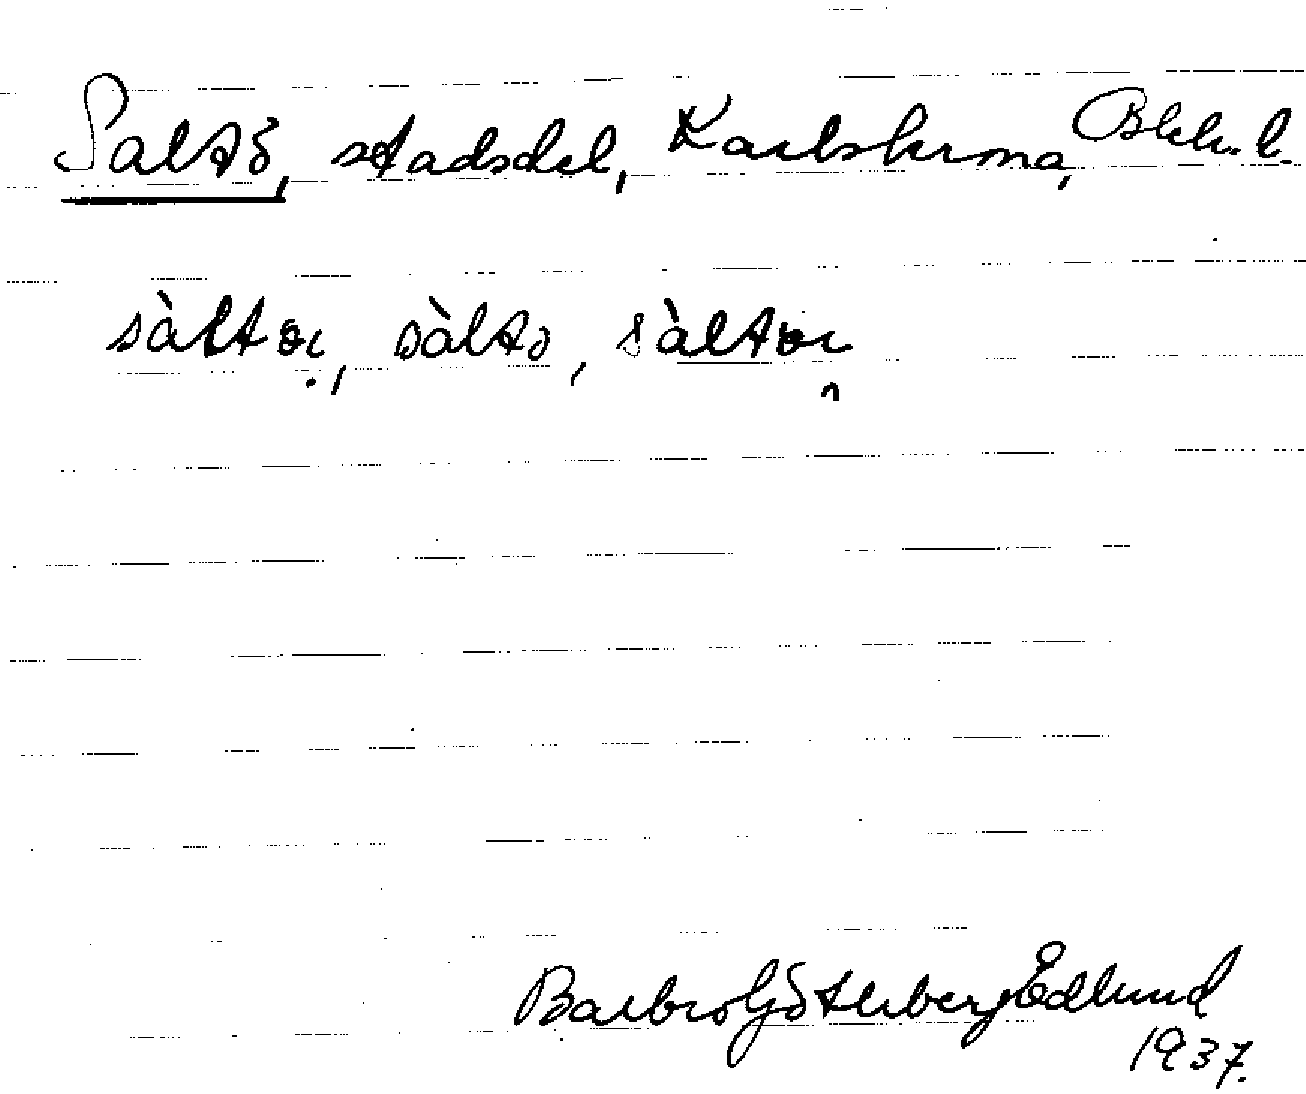 Saltö, stadsdel, Karlskrona, Blek. l.
sàltöi, sàltö, sàltöi
Barbro Götlberg Edlund
1937.